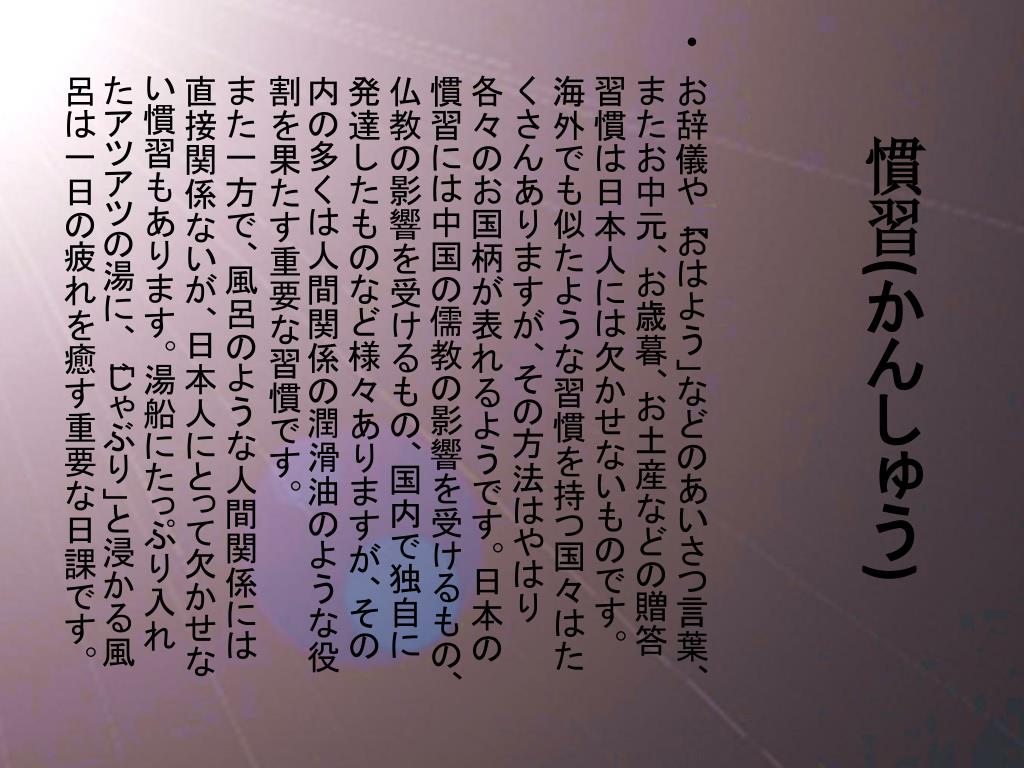 慣習(かんしゅう)
• お辞儀や「おはよう」などのあいさつ言葉、
またお中元、お歳暮、お土産などの贈答
習慣は日本人には欠かせないものです。
海外でも似たような習慣を持つ国々はた
くさんありますが、その方法はやはり
各々のお国柄が表れるようです。日本の
慣習には中国の儒教の影響を受けるもの、
仏教の影響を受けるもの、国内で独自に
発達したものなど様々ありますが、その
内の多くは人間関係の潤滑油のような役
割を果たす重要な習慣です。
また一方で、風呂のような人間関係には
直接関係ないが、日本人にとって欠かせな
い慣習もあります。湯船にたっぷり入れ
たアツアツの湯に、「じゃぶり」と浸かる風
呂は一日の疲れを癒す重要な日課です。